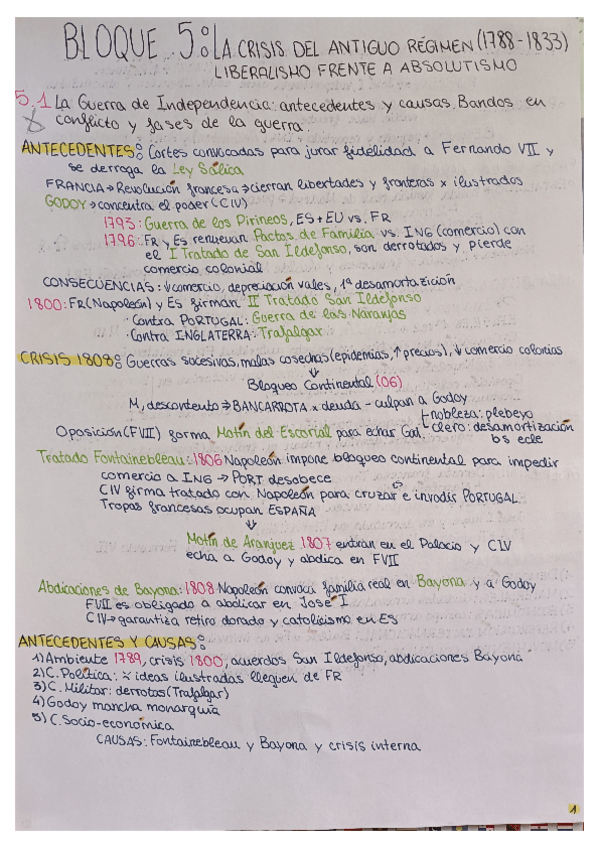 BLOQUE 5: LA CRISIS DEL ANTIGUO RÉGIMEN (1788-1833)
LIBERALISMO FRENTE A ABSOLUTISMO
5.1 La Guerra de Independencia: antecedentes y causas. Bandos en
conflicto y fases de la guerra.
ANTECEDENTES: Cortes convocadas para jurar fidelidad a Fernando VII y
se deroga la Ley Sálica
FRANCIA → Revolución francesa → cierran libertades y fronteras x ilustrados
GODOY → concentra el poder (CIV)
1793: Guerra de los Pirineos, ES + EU vs. FR
1796: FR y Es renuevan Pactos de Familia vs. ING (comercio) con
el I Tratado de San Ildefonso, son derrotados y pierde
comercio colonial
CONSECUENCIAS: ↓ comercio, depreciación vales, 1ª desamortazición
1800: FR (Napoleón) y Es firman II Tratado San Ildefonso
· Contra PORTUGAL: Guerra de las Naranjas
· Contra INGLATERRA: Trafalgar
CRISIS 1808: Guerras sucesivas, malas cosechas (epidemias, ↑ precios), ↓ comercio colonias
↓
Bloqueo Continental (06)
M, descontento → BANCARROTA x deuda - culpan a Godoy
nobleza: plebeyo
Oposición (FVII) forma Motín del Escorial para echar God.
clero: desamortización
bs ecle
Tratado Fontainebleau: 1806 Napoleón impone bloqueo continental para impedir
comercio a ING → PORT desobece
CIV firma tratado con Napoleón para cruzar e invadir PORTUGAL
Tropas francesas ocupan ESPAÑA
↓
Motín de Aranjuez 1807 entran en el Palacio y CIV
echa a Godoy y abdica en FVII
Abdicaciones de Bayona: 1808 Napoleón convoca familia real en Bayona y a Godoy
FVII es obligado a abdicar en José I
CIV → garantiza retiro dorado y catolicismo en ES
ANTECEDENTES Y CAUSAS:
1) Ambiente 1789, crisis 1800, acuerdos San Ildefonso, abdicaciones Bayona
2) C. Política: ideas ilustradas lleguen de FR
3) C. Militar: derrotas (Trafalgar)
4) Godoy mancha monarquía
5) C. Socio-económica
CAUSAS: Fontainebleau y Bayona y crisis interna
1